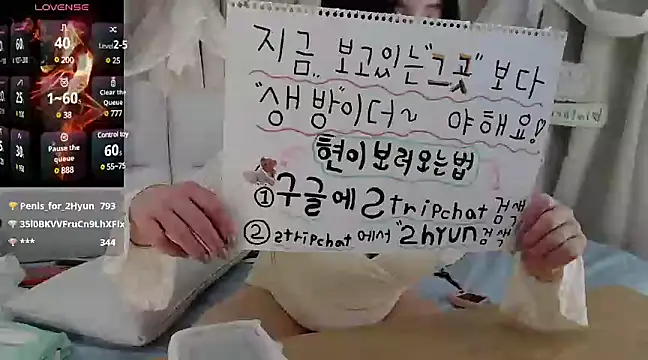 LOVENSE
60
40
Level2-5
200
25
25
1~60s
Clear the Queue
38
777
30
Pause the queue
Control toy
60s
888
55~75
Penis_for_2Hyun 793
35l0BKVVFruCn9LhXFlx
*** 344
지금.. 보고있는 "그곳" 보다
"생방"이 더~ 야해요♡
현이 보러오는법
① 구글에 2tripchat 검색
② 2tripchat 에서 "2hyun 검색